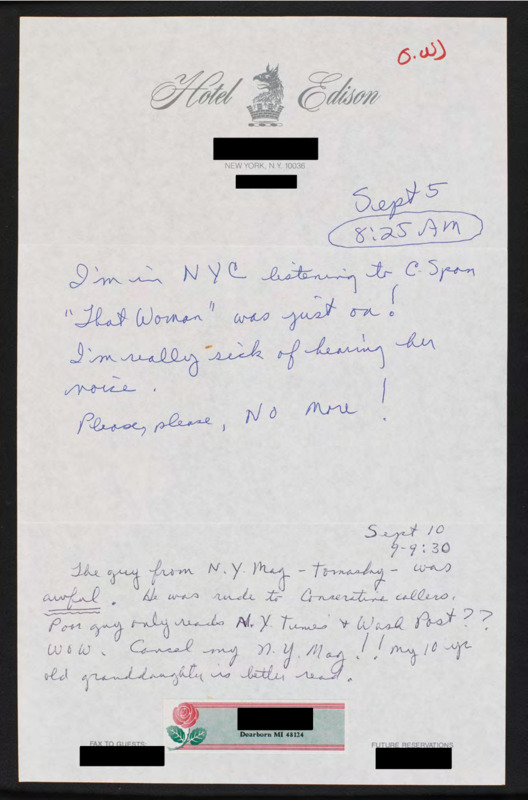 O.W)
Hotel Edison
NEW YORK, N.Y. 10036
Sept 5
8:25 AM
I'm in NYC listening to C-Span
"That Woman" was just on!
I'm really sick of hearing her
voice.
Please, please, No more!
Sept 10
9-9:30
The guy from N.Y. Mag - Tomasky - was
awful. He was rude to Conserative callers.
Poor guy only reads N.Y. Times + Wash Post??
WOW. Cancel my N.Y. Mag!! My 10 yr
old granddaughter is better read.
Dearborn MI 48124
FAX TO GUESTS:
FUTURE RESERVATIONS